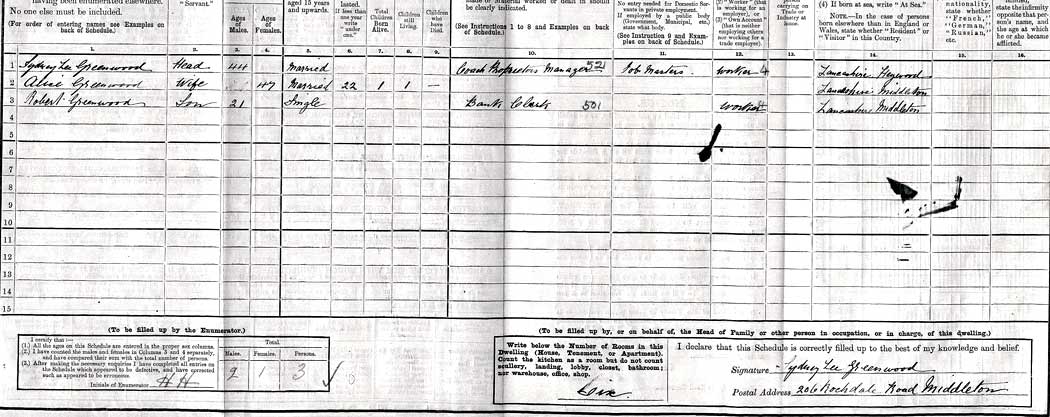 having been enumerated elsewhere.
No one else must be included.
(For order of entering names see Examples on
back of Schedule.)
"Servant."
Ages
of
Males.
Ages
of
Females.
aged 15 years
and upwards.
lasted.
If less than
one year
write
"under
one."
Total
Children
Born
Alive.
Children
still
Living.
Children
who
have
Died.
made or Material worked or dealt in should
be clearly indicated.
(See Instructions 1 to 8 and Examples on
back of Schedule.)
No entry needed for Domestic Ser-
vants in private employment.
If employed by a public body
(Government, Municipal, etc.)
state what body.
(See Instruction 9 and Exam-
ples on back of Schedule.)
(2) "Worker" (that
is working for an
employer), or
(3) "Own Account"
(that is neither
employing others
nor working for a
trade employer).
carrying on
Trade or
Industry at
home.
(4) If born at sea, write "At Sea."
NOTE.—In the case of persons
born elsewhere than in England or
Wales, state whether "Resident" or
"Visitor" in this Country.
nationality,
state whether
"French,"
"German,"
"Russian,"
etc.
state the infirmity
opposite that per-
son's name, and
the age at which
he or she became
afflicted.
1. 2. 3. 4. 5. 6. 7. 8. 9. 10. 11. 12. 13. 14. 15. 16.
1 Sydney Lee Greenwood Head 44 Married Coach Proprietors Manager 521 Job Masters Worker Lancashire Heywood
2 Alice Greenwood Wife 47 Married 22 1 1 — Lancashire Middleton
3 Robert Greenwood Son 21 Single Bank Clerk 501 Worker Lancashire Middleton
4
5
6
7
8
9
10
11
12
13
14
15
(To be filled up by the Enumerator.)
I certify that:—
(1.) All the ages on this Schedule are entered in the proper sex columns.
(2.) I have counted the males and females in Columns 3 and 4 separately,
and have compared their sum with the total number of persons.
(3.) After making the necessary enquiries I have completed all entries on
the Schedule which appeared to be defective, and have corrected
such as appeared to be erroneous.
Initials of Enumerator
Total.
Males. Females. Persons.
2 1 3
(To be filled up by, or on behalf of, the Head of Family or other person in occupation, or in charge, of this dwelling.)
Write below the Number of Rooms in this
Dwelling (House, Tenement, or Apartment).
Count the kitchen as a room but do not count
scullery, landing, lobby, closet, bathroom;
nor warehouse, office, shop.
Six
I declare that this Schedule is correctly filled up to the best of my knowledge and belief.
Signature Sydney Lee Greenwood
Postal Address 206 Rochdale Road Middleton